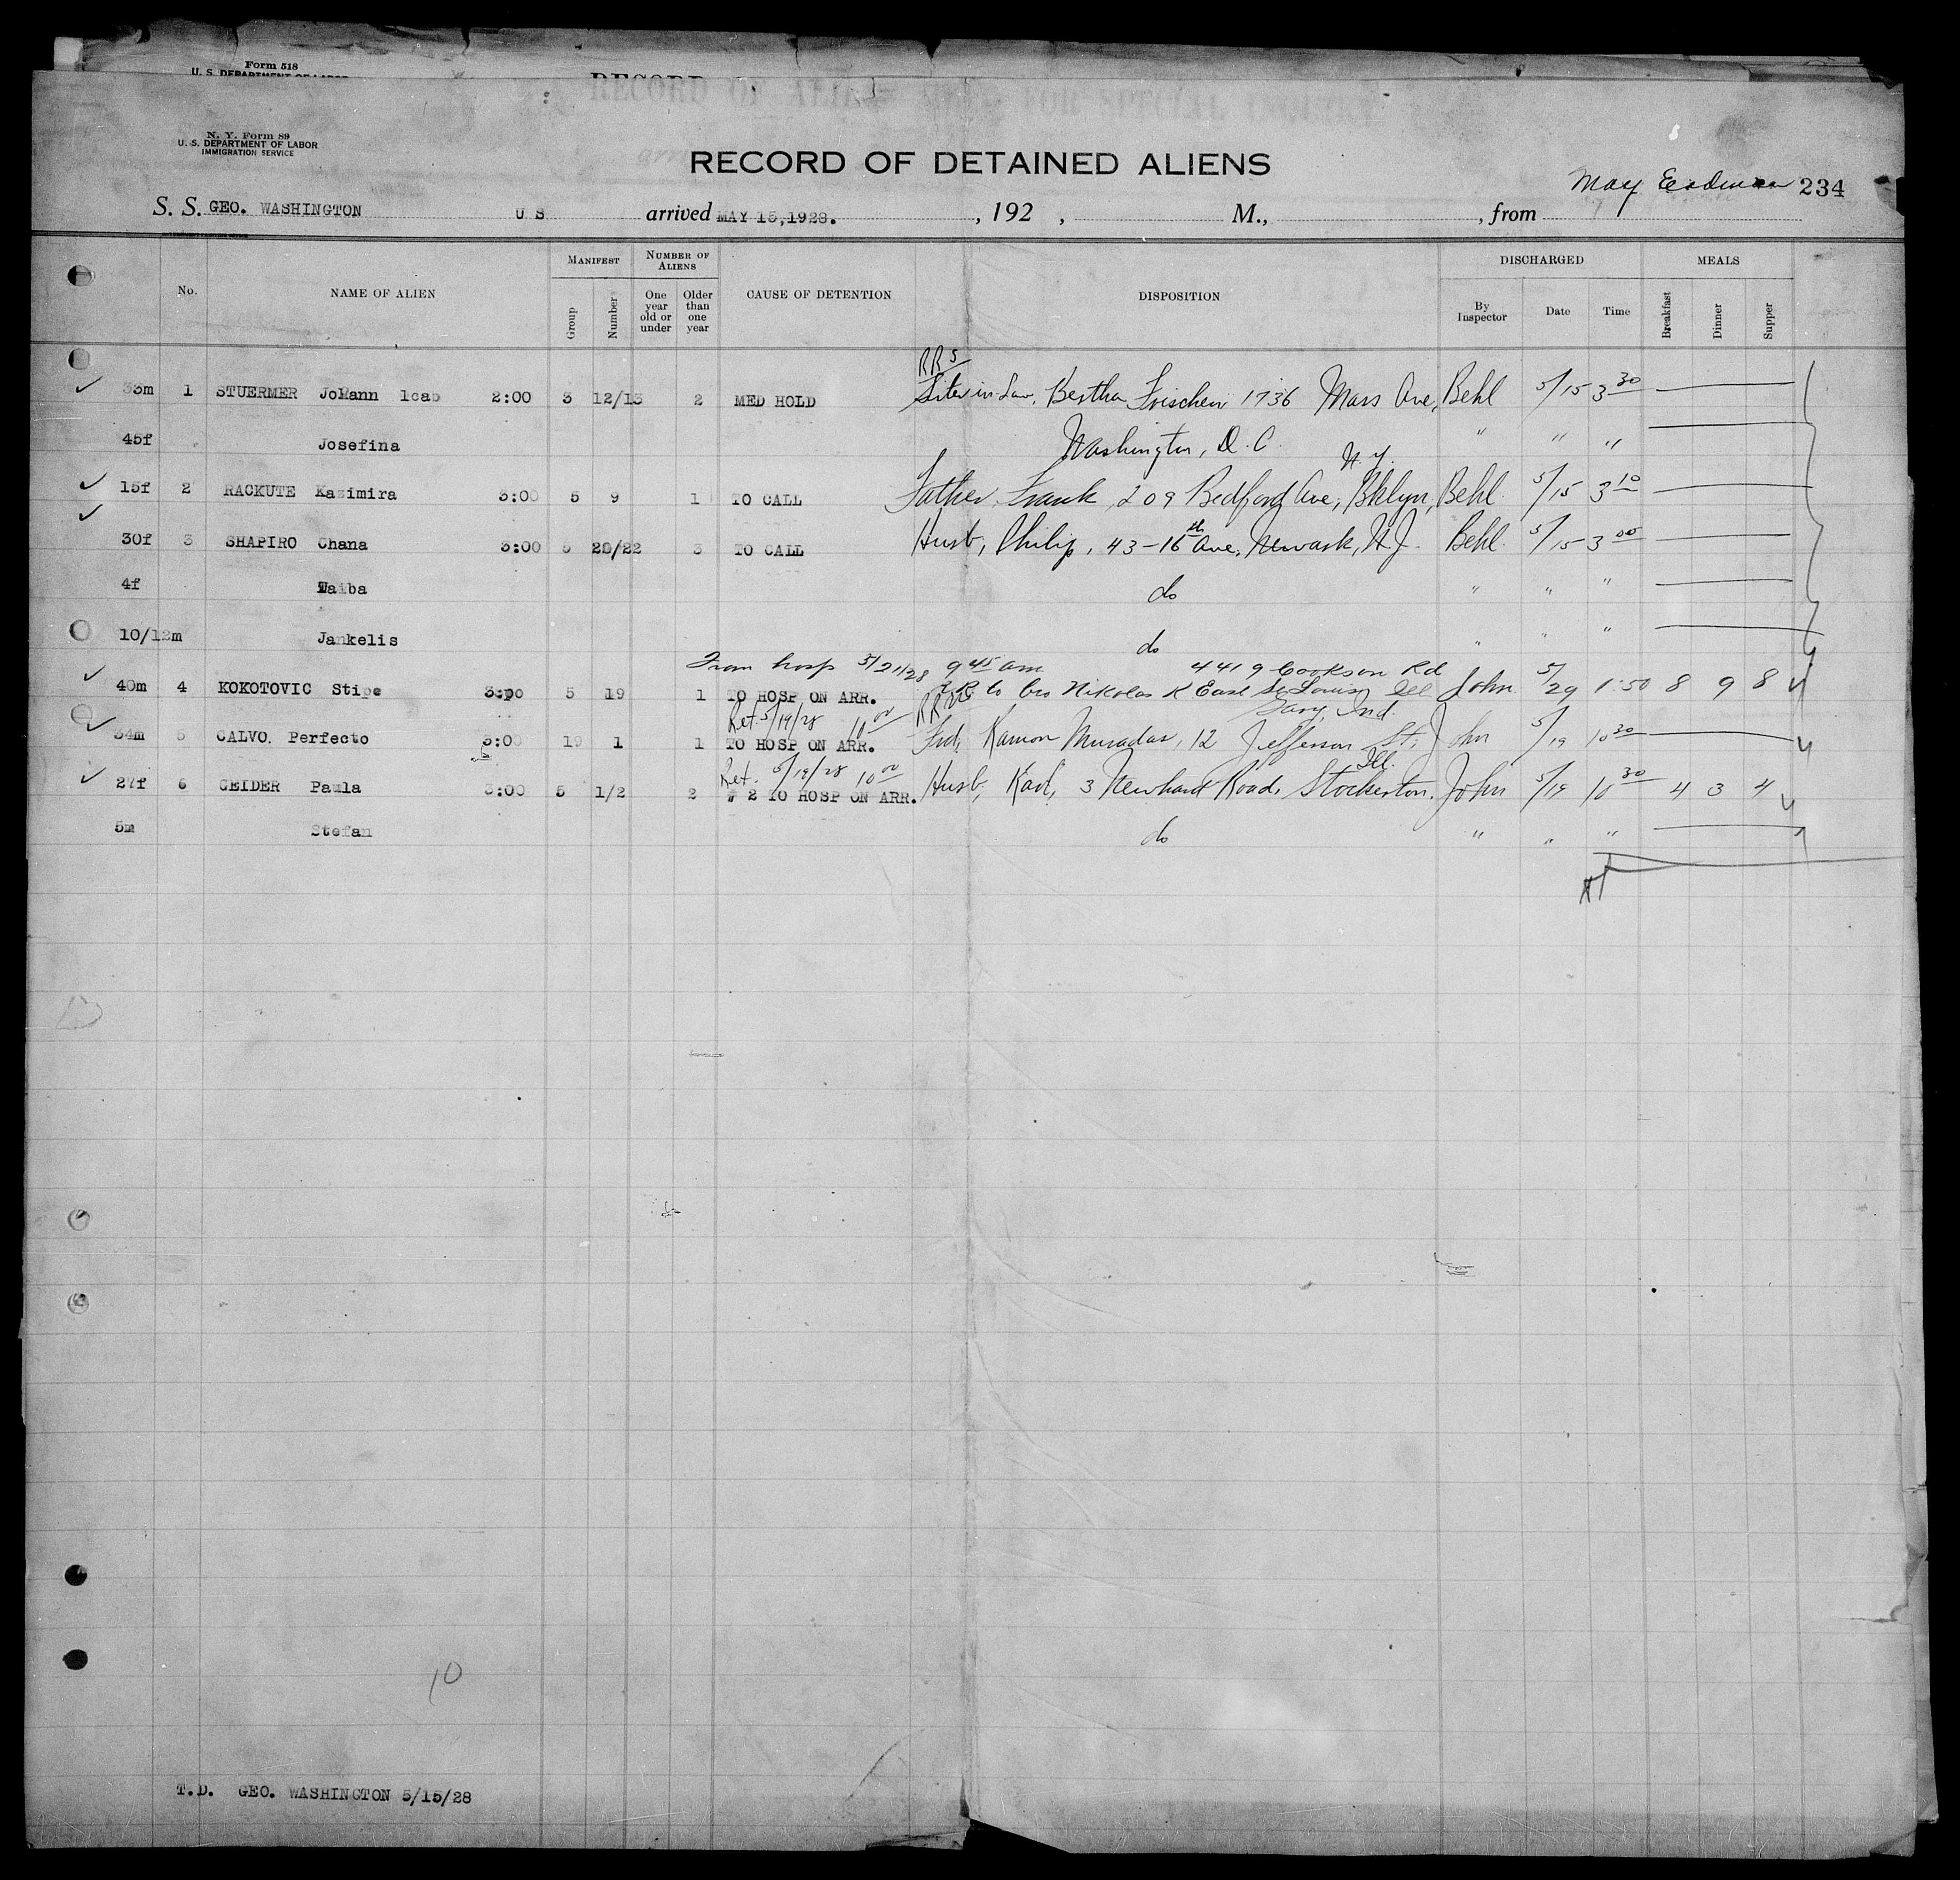 Form 518
U. S. DEPARTMENT OF LABOR
N. Y. Form 89
U. S. DEPARTMENT OF LABOR
IMMIGRATION SERVICE
RECORD OF DETAINED ALIENS
May 234
S. S. GEO. WASHINGTON U S arrived MAY 15,1928. , 192 , M., , from
No. NAME OF ALIEN MANIFEST Group Number NUMBER OF ALIENS One year old or under Older than one year CAUSE OF DETENTION DISPOSITION DISCHARGED By Inspector Date Time MEALS Breakfast Dinner Supper
RRS
33m 1 STUERMER Johann 1cab 2:00 3 12/13 2 MED HOLD Sister in Law, Bertha Frischen 1736 Mass Ave, Behl 5/15 3 30
45f Josefina Washington, D. C. " " "
N. Y.
15f 2 RACKUTE Kazimira 3:00 5 9 1 TO CALL Father Frank, 209 Bedford Ave, Bklyn, Behl 5/15 3 10
30f 3 SHAPIRO Chana 3:00 5 20/22 3 TO CALL Husb, Philip, 43-16th Ave, Newark, N.J. Behl 5/15 3 00
4f Taiba do " " "
10/12m Jankelis do " " "
From hosp 5/21/28 9 45 am 4419 Cookson Rd
40m 4 KOKOTOVIC Stipe 3:00 5 19 1 TO HOSP ON ARR. to bro Nikolas K East St Louis, Ill John 5/29 1:50 8 9 8
Ret. 5/19/28 10 00 Gary, Ind.
34m 5 CALVO, Perfecto 3:00 19 1 1 TO HOSP ON ARR. Frd, Ramon Muradas, 12 Jefferson St, John 5/19 10 30
Ret. 5/19/28 10 00 Ill.
27f 6 GEIDER Paula 3:00 5 1/2 2 # 2 TO HOSP ON ARR. Husb, Karl, 3 Road, Stockerton. John 5/19 10 30 4 3 4
5m Stefan do " " "
10
T.D. GEO. WASHINGTON 5/15/28